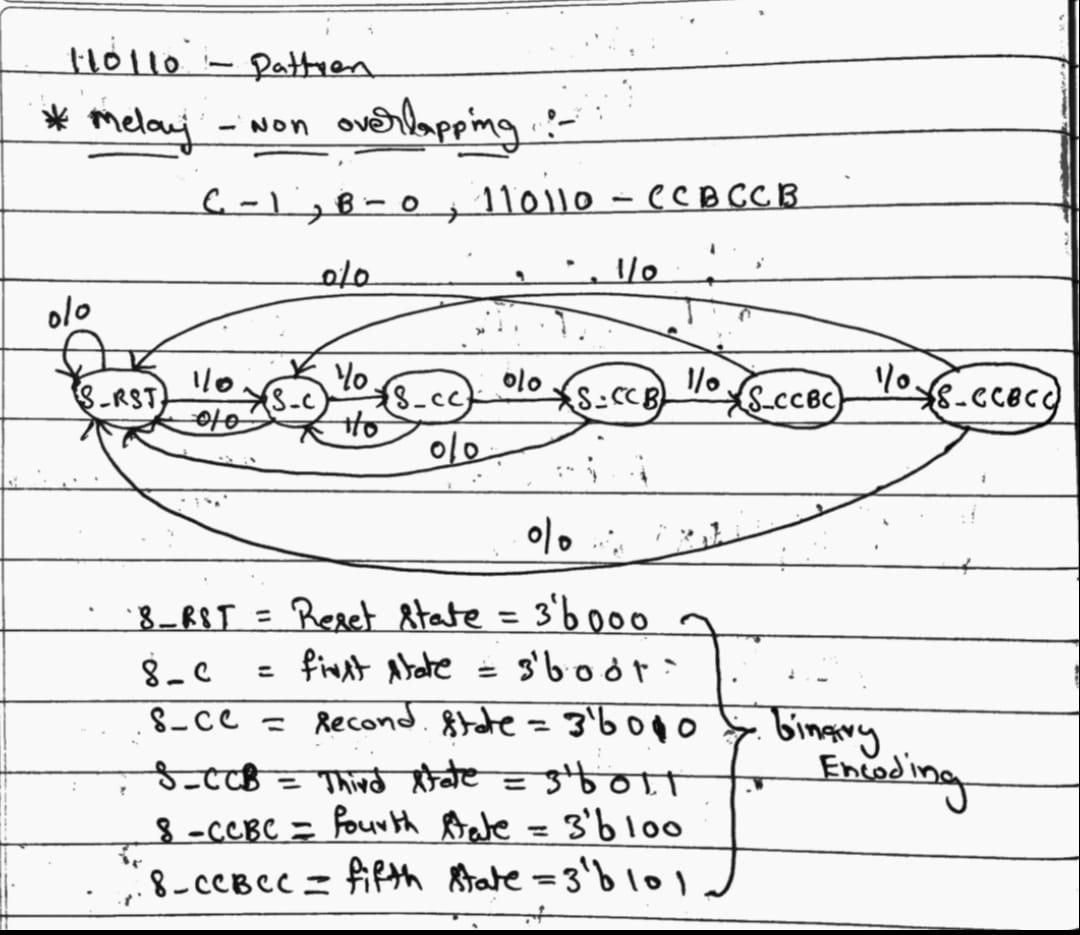 110110 - Pattren
* Melay - Non overlapping :-
C - 1 , B - 0 , 110110 - CCBCCB
0/0 1/0
0/0
S_RST 1/0 S_C 1/0 S_CC 0/0 S_CCB 1/0 S_CCBC 1/0 S_CCBCC
0/0 1/0
0/0
0/0
S_RST = Reset state = 3'b000
S_C = first state = 3'b001
S_CC = second state = 3'b010
S_CCB = Third state = 3'b011
S_CCBC = fourth state = 3'b100
S_CCBCC = fifth state = 3'b101
binary
Encoding